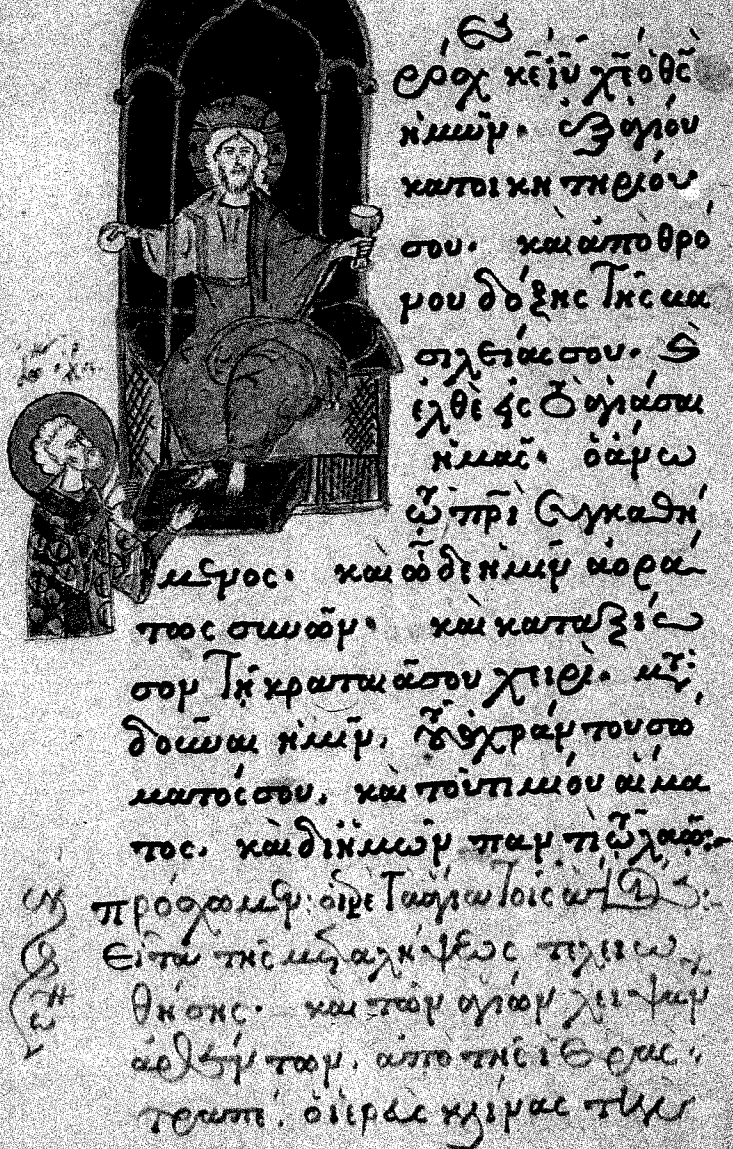 Πρόσχες κε ιυ χε ὁ θς
ἡμῶν· ἐξ ἁγίου
κατοικητηρίου
σου· καὶ ἀπὸ θρό
νου δόξης τῆς βα
σιλείας σου· καὶ
ἐλθὲ εἰς τὸ ἁγιάσαι
ἡμᾶς· ὁ ἄνω
τῷ πρὶ συγκαθή
μενος· καὶ ὧδε ἡμῖν ἀορά
τως συνών· καὶ καταξίω
σον τῇ κραταιᾷ σου χειρὶ· μετα
δοῦναι ἡμῖν, τοῦ ἀχράντου σώ
ματός σου, καὶ τοῦ τιμίου αἵμα
τος, καὶ δι ἡμῶν παντὶ τῷ λαῷ
πρόσχωμεν· τὰ ἅγια τοῖς ἁγίοις
Εἶτα τῆς μεταλήψεως τελειω
θήσης· καὶ τῶν ἁγίων λειψάν
ἀρθέντων, ἀπὸ τῆς ἱερᾶς
τραπέ, ὁ ἱερεὺς κλίνας